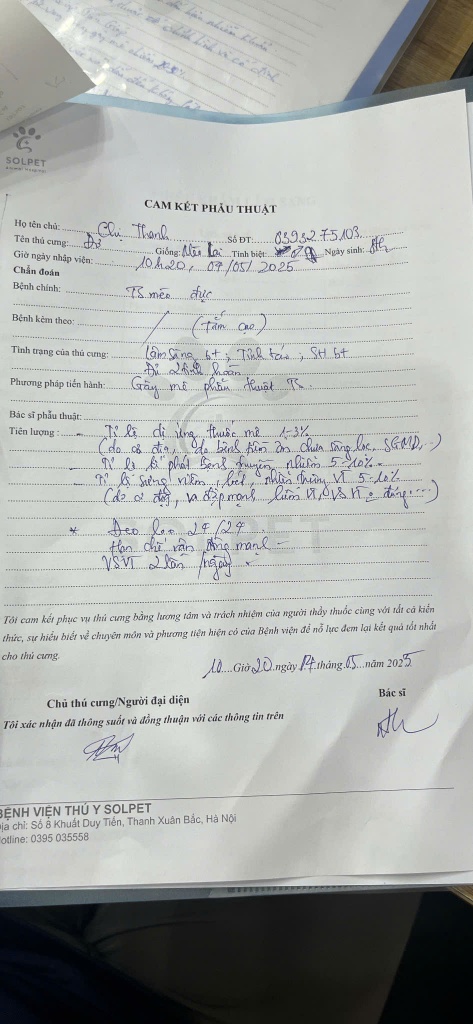 SOLPET
CAM KẾT PHẪU THUẬT
Họ tên chủ: Chị Thanh Số ĐT: 0393275103
Tên thú cưng: Giống: Mèo Lai Tính biệt: ♂ Ngày sinh:
Giờ ngày nhập viện: 10h20, 07/05/2025
Chẩn đoán
Bệnh chính: TS mèo đực
Bệnh kèm theo: / (tắm cạo)
Tình trạng của thú cưng: Lâm sàng bt, Tỉnh táo, SH bt
Đủ 2 tinh hoàn
Phương pháp tiến hành: Gây mê phẫu thuật TS
Bác sĩ phẫu thuật:
Tiên lượng: - Tỉ lệ dị ứng thuốc mê 1-3%
(do cơ địa, do bệnh tiềm ẩn chưa sàng lọc, SGMD...)
Tỉ lệ bị phát bệnh truyền nhiễm 5-10%
- Tỉ lệ sưng viêm, bục, nhiễm trùng VT 5-10%
(do cơ địa, va đập mạnh, liếm VT, VSVT ko đúng...)
* Đeo loa 24/24
Hạn chế vận động mạnh
VSVT 2 lần /ngày
Tôi cam kết phục vụ thú cưng bằng lương tâm và trách nhiệm của người thầy thuốc cùng với tất cả kiến
thức, sự hiểu biết về chuyên môn và phương tiện hiện có của Bệnh viện để nỗ lực đem lại kết quả tốt nhất
cho thú cưng.
10 Giờ 20 ngày tháng 05 năm 2025
Chủ thú cưng/Người đại diện Bác sĩ
Tôi xác nhận đã thông suốt và đồng thuận với các thông tin trên
BỆNH VIỆN THÚ Y SOLPET
Địa chỉ: Số 8 Khuất Duy Tiến, Thanh Xuân Bắc, Hà Nội
Hotline: 0395 035558